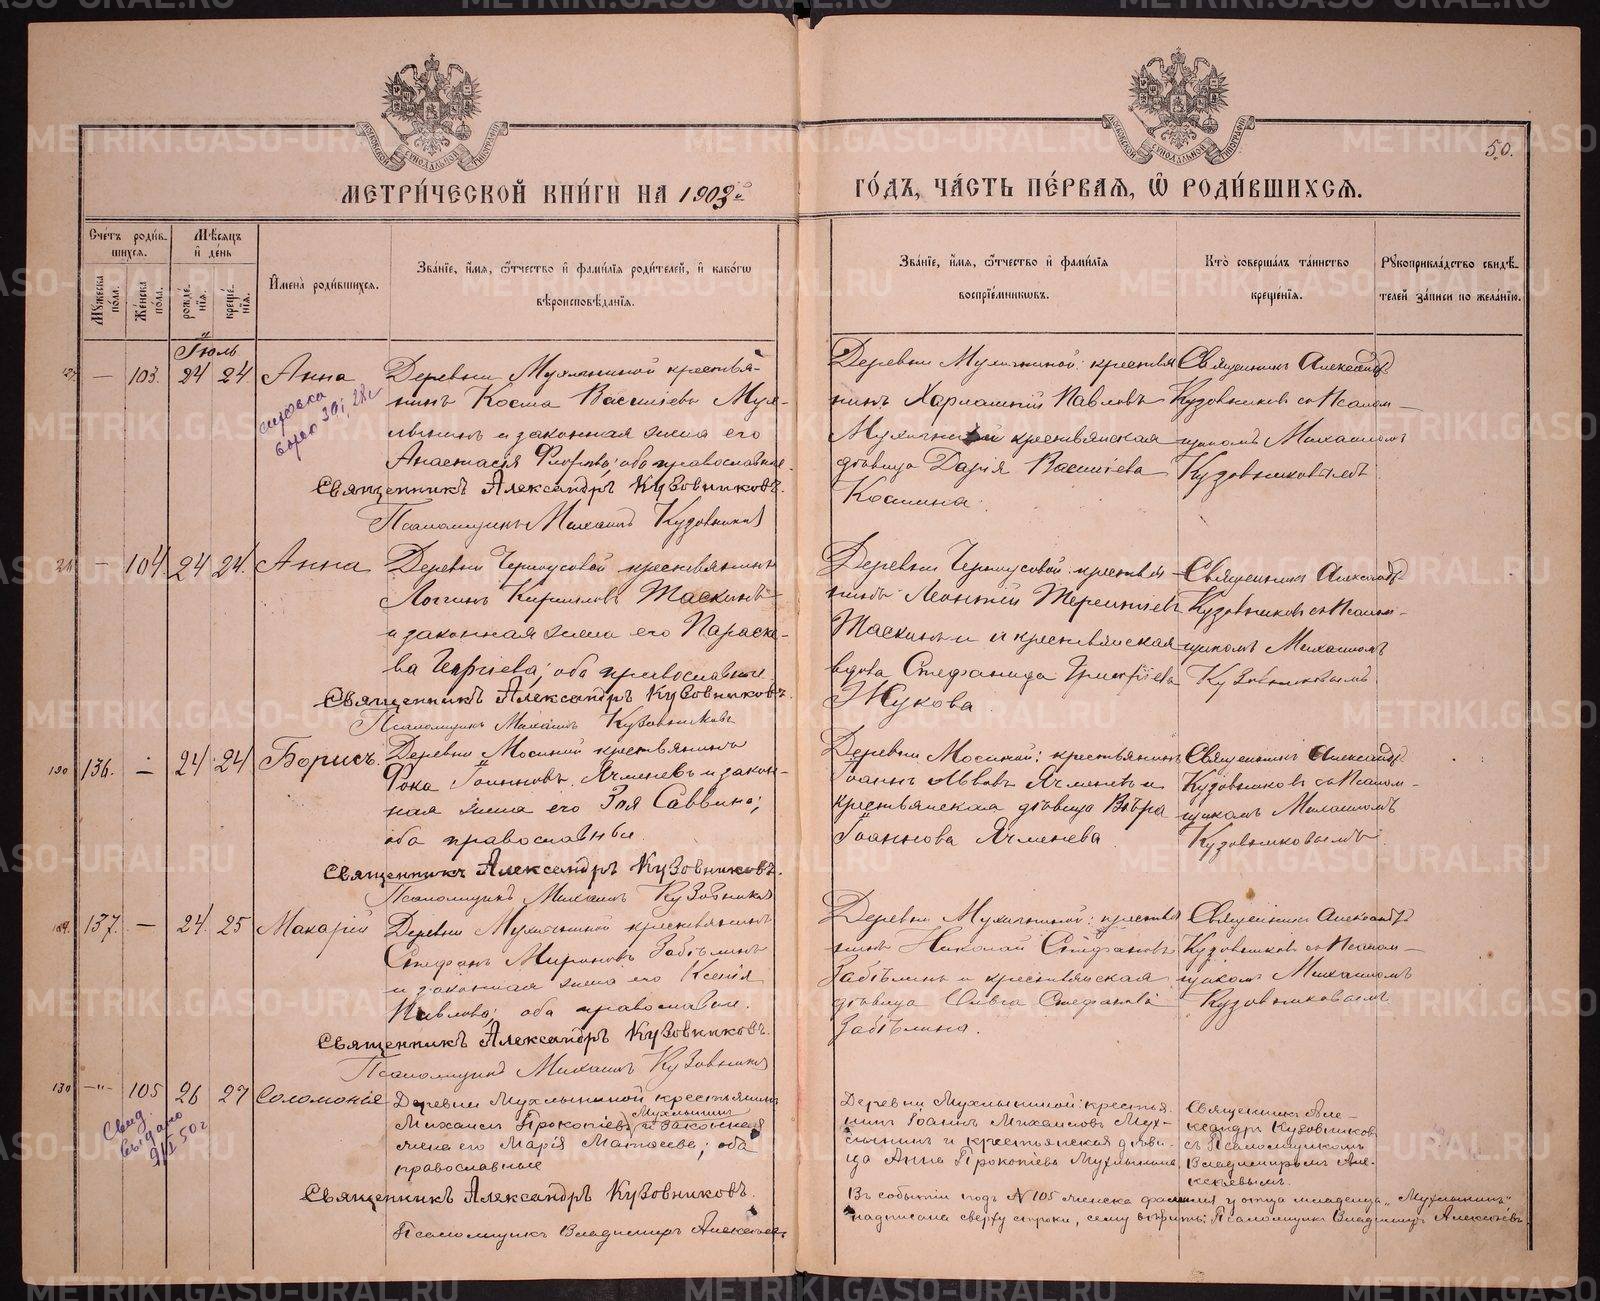 МЕТРИ́ЧЕСКОЙ КНИ́ГИ НА 1903й
ГО́ДЪ, ЧА́СТЬ ПЕ́РВАѦ, Ѿ РОДИ́ВШИХСѦ.
50.
Сче́тъ роди́в-
шихся.
Мѣ́сяцъ
и де́нь
Му́жеска пола.
Же́нска пола.
рожде́-
нїя.
креще́-
нїя.
И҆мена̀ роди́вшихся.
Зва́нїе, и҆́мя, ѻ҆́тчество и҆ фами́лїя роди́телей, и҆ како́гѡ
вѣроисповѣ́данїя.
Зва́нїе, и҆́мя, ѻ҆́тчество и҆ фами́лїя
воспрїе́мниковъ.
Кто̀ соверша́лъ та́инство
креще́нїя.
Рукоприкла́дство свидѣ́-
телей за́писи по жела́нїю.
Іюль
— 103. 24 24 Анна
Деревни Мухлыниной крестья-
нинъ Косма Васильевъ Мух-
лынинъ и законная жена его
Анастасія; оба православные.
Священникъ Александръ Кузовниковъ.
Псаломщикъ Михаилъ Кузовниковъ
справка
Деревни Мухлыниной: крестья
нинъ Харлампій Павловъ
крестьянская
дѣвица Дарія Васильева
Косинина.
Священникъ Александръ
Кузовниковъ съ Псалом-
щикомъ Михаиломъ
Кузовниковымъ
— 104. 24 24. Анна
Деревни Черноусовой крестьянинъ
Логгинъ Кирилловъ Таскинъ
и законная жена его Параске-
ва; оба православные
Священникъ Александръ Кузовниковъ.
Псаломщикъ Михаилъ Кузовниковъ
Деревни Черноусовой: крестья
нинъ Леонтій Терентьевъ
Таскинъ и крестьянская
вдова Стефанида Григорьева
Жукова.
Священникъ Александръ
Кузовниковъ съ Псалом-
щикомъ Михаиломъ
Кузовниковымъ
136. — 24 24 Борисъ.
Деревни Мосиной крестьянинъ
Фока Іоанновъ Ячменевъ и закон-
ная жена его Зоя Саввина;
оба православные.
Священникъ Александръ Кузовниковъ.
Псаломщикъ Михаилъ Кузовниковъ
Деревни Мосиной: крестьянинъ
Іоаннъ Львовъ Ячменевъ и
крестьянская дѣвица Вѣра
Іоаннова Ячменева.
Священникъ Александръ
Кузовниковъ съ Псалом-
щикомъ Михаиломъ
Кузовниковымъ
137. — 24. 25 Макарій
Деревни Мухлыниной крестьянинъ
Стефанъ Мироновъ Забѣлинъ
и законная жена его Ксенія
Павлова; оба православные.
Священникъ Александръ Кузовниковъ.
Псаломщикъ Михаилъ Кузовниковъ
Деревни Мухлыниной: крестья
нинъ Николай Стефановъ
Забѣлинъ и крестьянская
дѣвица Ольга Стефанова
Забѣлина.
Священникъ Александръ
Кузовниковъ съ Псалом-
щикомъ Михаиломъ
Кузовниковымъ
130 —"— 105 26 27 Соломонія
Свид.
выдано
9/I 50 г
Деревни Мухлыниной крестьянинъ
Михаилъ Прокопіевъ Мухлынинъ и законная
жена его Марія Матѳеева; оба
православные
Священникъ Александръ Кузовниковъ.
Псаломщикъ Владимиръ Алексеевъ
Деревни Мухлыниной: крестья
нинъ Іоаннъ Михаиловъ Мух-
лынинъ и крестьянская дѣви-
ца Анна Прокопіева Мухлынина
Священникъ Але-
ксандръ Кузовниковъ
съ Псаломщикомъ
Владимиромъ Але-
ксеевымъ.
Въ событіи подъ № 105 женска фамилія у отца младенца „Мухлынинъ"
надписана сверху строки, сему вѣрить: Псаломщикъ Владимиръ Алексеевъ.